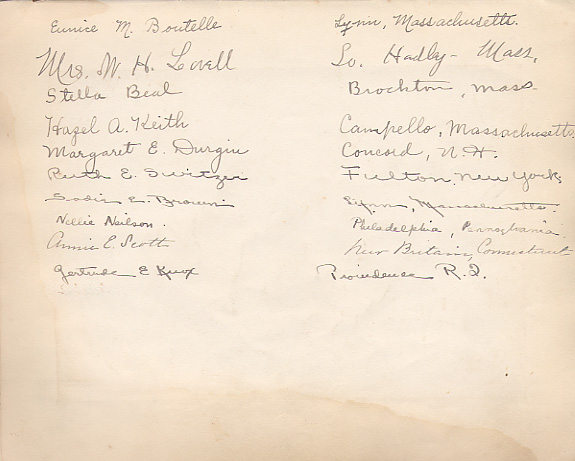 Eunice M. Boutelle Lynn, Massachusetts.
Mrs. W. H. Lovell So. Hadly - Mass.
Stella Beal Brockton, Mass.
Hazel A. Keith Campello, Massachusetts.
Margaret E. Durgin Concord, N.H.
Ruth E. Switzer Fulton, New York
Sadie E. Brown Lynn, Massachusetts.
Nellie Neilson. Philadelphia, Pennsylvania.
Annie E. Scott New Britain, Connecticut
Gertrude E Knox Providence R.I.